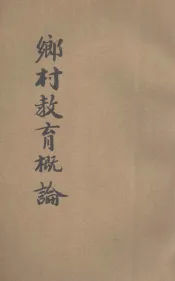 鄉村教育概論